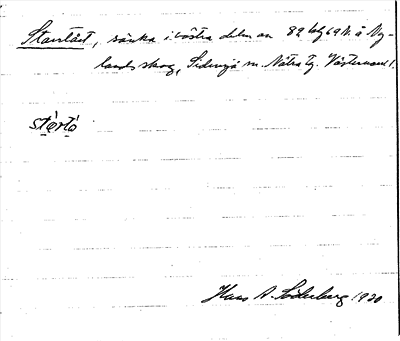 Starrtåst, sänka i västra delen av 82 höj 69 N. å Ny-
lands skog, Sidensjö sn. Nätra tg. Västernorrl.
stàrtò
Hans A. Söderberg 1920